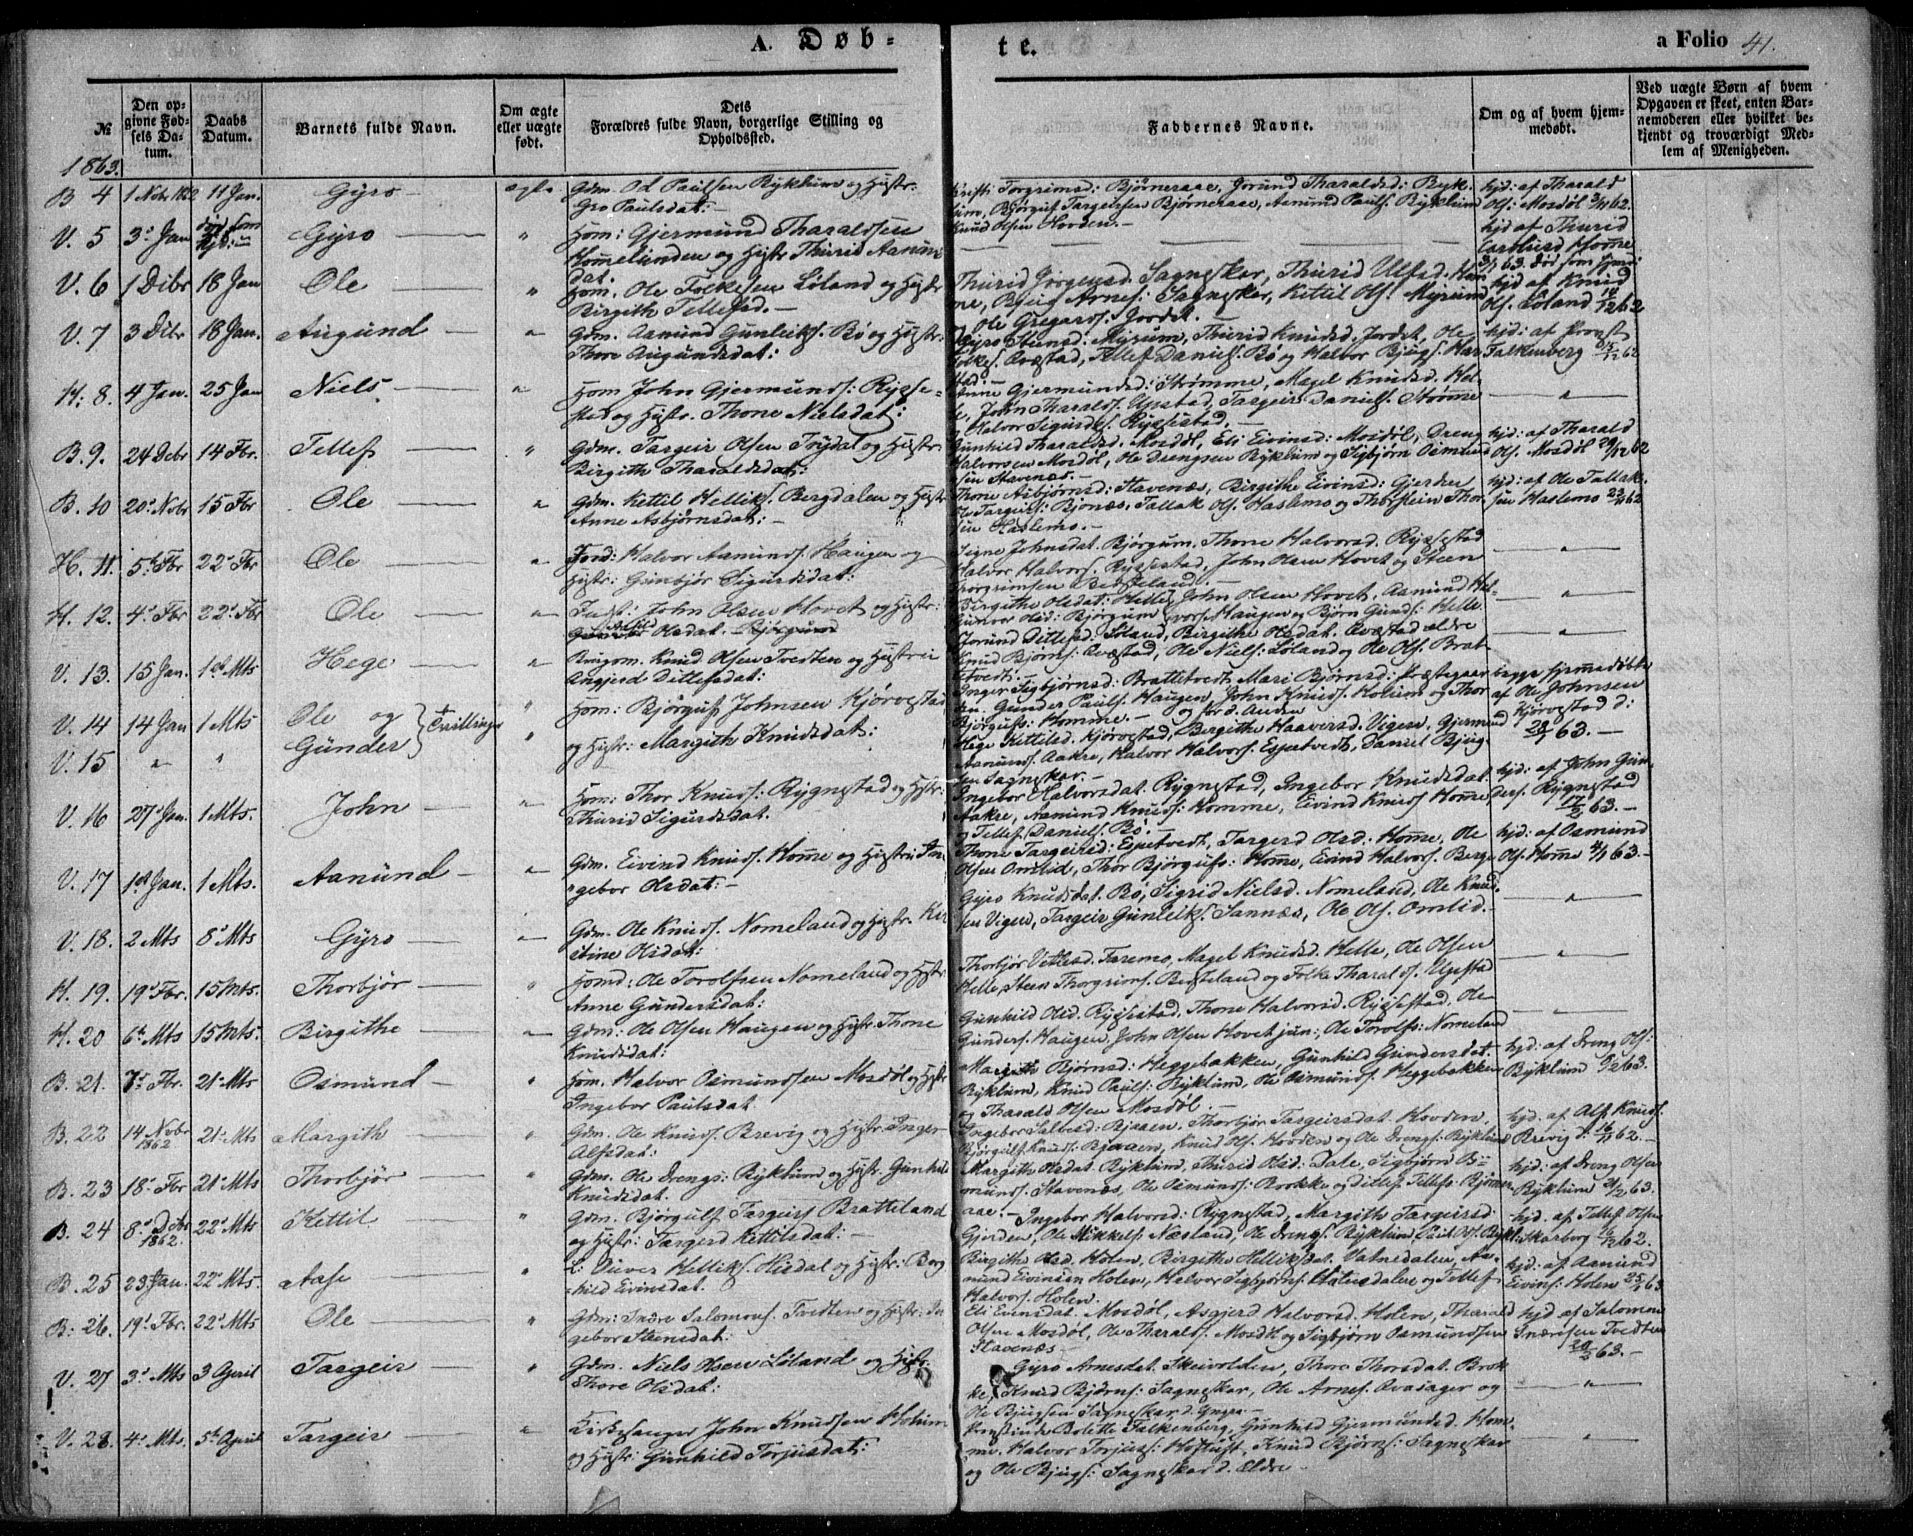 A. Døb-
te.
a Folio 41.
№
Den op-
givne Fød-
sels Da-
tum.
Daabs
Datum.
Barnets fulde Navn.
Om ægte
eller uægte
født.
Dets
Forældres fulde Navn, borgerlige Stilling og
Opholdssted.
Faddernes Navne.
Om og af hvem hjem-
medøbt.
Ved uægte Børn af hvem
Opgaven er skeet, enten Bar-
nemoderen eller hvilket be-
kjendt og troværdigt Med-
lem af Menigheden.
1863.
B 4 1 Nobr 1862 11 Jan. Gyro ægte Gdm. Ol Paulsen Ryklum og Hustr:
Gro Paulsdat:
Torgrimsd: Bjørneraae, Jorund Tharaldsd: Ryk-
lum, Bjørguf Targeirsen Bjørneraae, Aanund Pauls. Byklum
Knud Olsen Hovden.
hjd: af Tharald
Ols: Mosdøl 3/11 62.
V. 5 3' Jan Gyro " Hom: Gjermund Tharaldsen
Hommelunden og Hustr Thurid Aanun
dat.
hjd af Thurid
Homme
3/1 63. død som hjem
V. 6 1 Dibr 18 Jan Ole " Hom. Ole Folkesen Løland og Hustr
Birgith Tellefsd.
Thurid Jørgensd. Sagneskar, Thurid Ulfsd. Hom
me, Bjug Arnes: Sagneskar, Kettil Ols. Myrum
og Ole Gregards: Jordet.
hjd af Knud
Ols. Løland 14/12 62
V. 7 3 Dibr 18 Jan. Augund " Gdm. Aamund Gunleiks. Bø og Hustr:
Thore Augundsdat:
Gyro Steensd: Myrum, Thurid Knudsd. Jordet, Ole
Folkes. Qvæstad, Tellef Daniels. Bø og Halvor Bjugs. Har
stad.
hjd: af Provst
Falkenberg 15/12 62
H: 8. 4 Jan. 25 Jan Niels " Hom John Gjermunds: Rygge-
stad og Hustr. Thone Nielsdat:
Gjermundsd: Strømme, Magel Knudsd. Hel-
le, John Tharalds. Upstad, Targeir Daniels. Strømme
Halvor Sigurds. Ryssestad.
"
B. 9. 24 Debr 14 Fbr. Tellef " Gdm. Targeir Olsen Trydal og Hustr:
Birgith Tharaldsdat:
Gunhild Tharaldsd. Mosdøl, Eli Eivinsd: Mosdøl, Dreng
Halvorsen Mosdøl, Ole Drengsen Byklum og Sigbjørn Osmund
sen Stavenæs.
hjd: af Tharald
Ols. Mosdøl 29/12 62
B. 10 20' Nobr 15 Fbr Ole " Gdm. Kettil Helliks. Bergdalen og Hustr
Anne Asbjørnsdat:
Thone Asbjørnsd: Stavenæs, Birgithe Eivinsd: Gjerden
Ole Targeirs: Bjønæs, Tallak Ols. Haslemo og Thorstein Thor
sen Haslemo.
hjd: af Ole Tallak-
sen Haslemo 23/11 62
H. 11. 5te Fbr 22' Fbr Ole " Jord: Halvor Aamunds. Haugen og
Hustr: Gunbjør Sigurdsdat:
Signe Johnsdat. Bjørgum, Thone Halvorsd. Ryssestad
Halvor Halvors. Ryssestad, John Olsen Hovet og Steen
Thorgrimsen Besteland.
"
H. 12. 4' Fbr 22' Fbr Ole " Indst: John Olsen Hovet og Hustr:
Olsdat. Bjørgum
Birgithe Olsdat: Helle, John Olsen Hovet, Aamund Hal-
Gunvor Olsd: Bjørgum vors. Haugen og Bjørn Gunds: Helle
"
V. 13. 15 Jan. 1ste Mts Hege " Brugsm. Knud Olsen Tvedten og Hustrue
Angjerd Ditlefsdat:
Jorund Ditlefsd: Løland, Birgithe Olsdat. Qvæstad ældre
Knud Bjørns. Qvæstad, Ole Niels. Løland og Ole Ols. Brat-
tetvedt.
"
V. 14 14 Jan 1 Mts Ole og } Tvillinger " Hom: Bjørguf Johnsen Kjørvestad
V. 15 " " Günder " og Hustr: Margith Knudsdat:
Inger Sigbjørnsd: Brattetvedt, Mari Bjørnsd: Præstegaar
den. Gunder Pauls. Haugen, John Knuds. Holum og Thor
Bjørgufs: Homme. og for d. Anden
Hege Kettilsd. Kjørvestad, Birgithe Haaversd. Vigen, Gjermund
Aanunds. Aakre, Halvor Halvors. Espetvedt, Daniel Bjug-
sen Sagneskar.
begge hjemmedøbte
af Ole Johnsen
Kjørvestad d:
28/1 63.
V. 16 27' Jan. 1 Mts. John " Hom: Thor Knuds. Rygnestad og Hustr:
Thurid Sigurdsdat.
Ingebor Halvorsdat. Rygnestad, Ingebor Knudsdat.
Aakre, Aamund Knuds: Homme, Eivind Knuds Homme,
og Tellef Daniels. Bø.
hjd: af John Gun-
ders. Rygnestad
17/2 63.
V. 17 1ste Jan. 1 Mts. Aanünd " Gdm. Eivind Knuds. Homme og Hustrue In-
gebor Olsdat:
Thone Targeirsd: Espetvedt, Targerd Olsd: Homme, Ole
Olsen Omlid, Thor Bjørgufs: Homme, Eivind Halvors. Berge
hjd: af Osmund
Ols. Homme 4/1 63.
V. 18. 2 Mts 8' Mts Gyro " Gdm. Ole Knuds. Nomeland og Hustr. Kir
stine Olsdat:
Gyro Knudsdat. Bø, Sigrid Nielsd. Nomeland, Ole Knud
sen Vigen, Targeir Gunleiks. Sannæs, Ole Ols. Omlid.
"
H. 19. 19' Fbr. 15 Mts. Thorbjør " Homd: Ole Torolfsen Nomeland og Hustr
Anne Gundersdat:
Thorbjør Vetlesd. Faremo, Magel Knudsd. Helle, Ole Olsen
Helle, Steen Thorgrims. Besteland og Folke Tharalds. Upstad
"
H. 20 6te Mts 15 Mts. Birgithe " Gdm: Ole Olsen Haugen og Hustr Thone
Knudsdat:
Gunhild Olsd. Ryssestad, Thone Halvorsd. Ryssestad, Ole
Gunders. Haugen, John Olsen Hovet jun:, Ole Torolfs: Nomeland
"
B. 21. 7' Fbr. 21' Mts Osmünd " Hom. Halvor Osmundsen Mosdøl og Hustr
Ingebor Paulsdat.
Margith Bjørnsd: Heggebækken, Gunhild Gundersdat.
Byklum, Knud Pauls: Byklum, Ole Osmunds. Heggebækken
og Tharald Olsen Mosdøl.
hjd: af Dreng Ols:
Byklum 8/2 63.
B. 22 14 Nobr 1862 21' Mts Margith " Gdm. Ole Knuds. Brevig og Hustr. Inger
Alfsdat:
Ingebor Salvesd: Bjaaen, Thorbjør Targeirsdat. Hovden,
Bjørgulf Knuds: Bjaaen, Knud Ols. Hovden og Ole Drengs: Byklum
hjd: af Alf Knuds.
Brevig d: 16/11 62.
B. 23 18' Fbr 21' Mts Thorbjør " Gdm. Ole Drengs: Byklum og Hustr. Gunhild
Knudsdat.
Margith Olsdat. Byklum, Thurid Olsd. Dale, Sigbjørn O-
munds: Stavenæs, Ole Osmunds: Brokke og Ditlef Tellefs: Bjørner
aae.
hjd: af Dreng Olsen
Byklum 21/2 63.
B. 24 8' Debr 1862. 22' Mts Kettil " Gdm. Bjørgulf Targeirs Bratteland
og Hustr: Targerd Kittilsdat:
Ingebor Halvorsd: Rygnestad, Margith Targeirsd
Gjerden, Ole Mikkels: Næsland, Ole Drengs. Byklum, Paul Ols. Bykl.
hjd. af Tellef Olsen
Skarberg 16/12 62.
B. 25 23 Jan. 22' Mts. Aase " Helliks. Hisdal og Hustr: Borg
hild Eivinsdat.
Birgithe Olsd. Holen, Birgithe Helliksdat. Vatnedalen, Aa-
mund Eivinsen Holen, Halvor Sigbjørns. Vatnedalen og Tellef
Halvors. Holen.
hjd: af Aamund
Eivins: Holen 25/1 63
B: 26. 19' Fbr. 22' Mts Ole " Gdm: Snare Salomons. Tvedten og Hustr: In
gebor Steensdat:
Eli Eivinsdat. Mosdøl, Asgjerd Halvorsd. Holen, Tharald
Olsen Mosdøl, Ole Tharalds. Mosdøl og Sigbjørn Osmundsen
Stavenæs
hjd af Salomon
Snaresen Tvedten
20/2 63.
V. 27 3' Mts 3 April Targeir " Gdm. Niels Olsen Løland og Hustr.
Thore Olsdat:
Gyro Arnesdat. Skeivolden, Thore Thorsdat. Brok
ke, Knud Bjørns: Sagneskar, Ole Arnes. Qvasager og
Ole Bjugsen Sagneskar d. Yngre
"
V. 28. 4' Mts. 5te April Targeir " Kirkesanger John Knudsen Holum
og Hustr: Gunhild Torjusdat:
Provstinde Bolette Falkenberg, Gunhild Gjermundsd. Hom-
me. Halvor Torjus: Hoftuft, Knud Bjørns: Sagneskar
og Ole Bjugs: Sagneskar d. Ældre
"